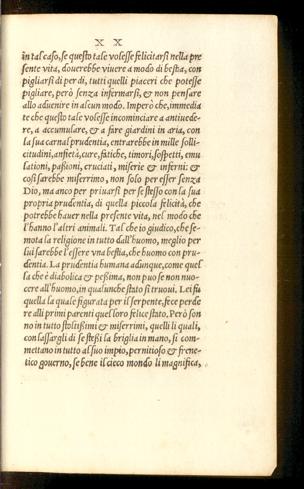 X X
in tal caso, se questo tale volesse felicitarsi nella pre
sente vita, douerebbe viuere a modo di bestia, con
pigliarsi di per di, tutti quelli piaceri che potesse
pigliare, però senza infermarsi, & non pensare
allo aduenire in alcun modo. Imperò che, immedia
te che questo tale volesse incominciare a antiuede-
re, a accumulare, & a fare giardini in aria, con
la sua carnal prudentia, entrarebbe in mille solli-
citudini, anfietà, cure, fatiche, timori, sospetti, emu
lationi, passioni, cruciati, miserie & inferni: &
così sarebbe miserrimo, non solo per esser senza
Dio, ma anco per priuarsi per se stesso con la sua
propria prudentia, di quella piccola felicità, che
potrebbe hauer nella presente vita, nel modo che
l'hanno l'altri animali. Tal che io giudico, che se-
mota la religione in tutto dall'huomo, meglio per
lui sarebbe l'essere vna bestia, che huomo con pru-
dentia. La prudentia humana adunque, come quel
la che è diabolica & peßima, non puo se non nuo-
cere all'huomo, in qualunche stato si truoui. Lei fu
quella la quale figurata per il serpente, fece perde
re alli primi parenti quel loro felice stato. Però son
no in tutto stoltißimi & miserrimi, quelli li quali,
con lassargli di se steßi la briglia in mano, si com-
mettano in tutto al suo impio, pernitioso & frene-
tico gouerno, se bene il cieco mondo li magnifica,